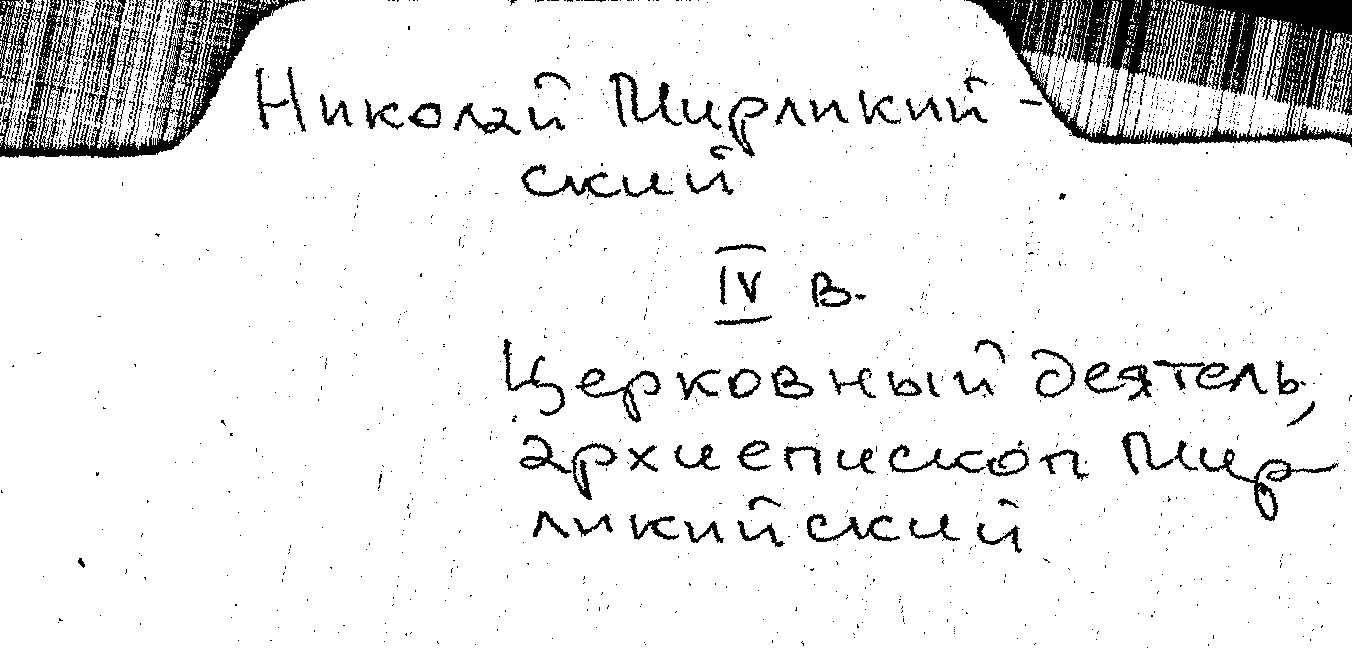 Николай Мирликий-
ский
IV в.
Церковный деятель,
архиепископ Мир-
ликийский